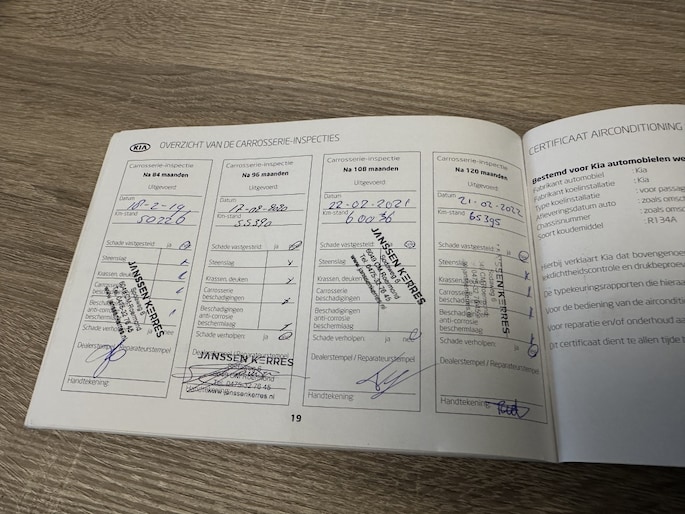 KIA OVERZICHT VAN DE CARROSSERIE-INSPECTIES
Carrosserie-inspectie
Na 84 maanden
Uitgevoerd
Datum
Km-stand
50226
Schade vastgesteld: ja
Steenslag
Krassen, deuken
Carrosserie
beschadigingen
Beschadigingen
anti-corrosie
beschermlaag
Schade verholpen: ja
Dealerstempel / Reparateurstempel
JANSSEN KERRES
Handtekening:
Carrosserie-inspectie
Na 96 maanden
Uitgevoerd
Datum
Km-stand
55390
Schade vastgesteld: ja
Steenslag
Krassen, deuken
Carrosserie
beschadigingen
Beschadigingen
anti-corrosie
beschermlaag
Schade verholpen: ja
JANSSEN KERRES
Tel. 0475-32 76 45
www.janssenkerres.nl
Carrosserie-inspectie
Na 108 maanden
Uitgevoerd
Datum
22-02-2021
Km-stand
60036
Schade vastgesteld: ja
Steenslag
Krassen, deuken
Carrosserie
beschadigingen
Beschadigingen
anti-corrosie
beschermlaag
Schade verholpen: ja
Dealerstempel / Reparateurstempel
JANSSEN KERRES
6049 CM Roermond
Tel. 0475-32 76 45
www.janssenkerres.nl
Handtekening:
Carrosserie-inspectie
Na 120 maanden
Uitgevoerd
Datum
21-02-2022
Km-stand
65395
Schade vastgesteld: ja
Steenslag
Krassen, deuken
Carrosserie
beschadigingen
Beschadigingen
anti-corrosie
beschermlaag
Schade verholpen: ja
Dealerstempel / Reparateurstempel
JANSSEN KERRES
Handtekening:
19
CERTIFICAAT AIRCONDITIONING
Bestemd voor Kia automobielen we
Fabrikant automobiel : Kia
Fabrikant koelinstallatie : Kia
Type koelinstallatie : voor passag
Afleveringsdatum auto : zoals omsch
Chassisnummer : zoals omsc
Soort koudemiddel : R134A
Hierbij verklaart Kia dat bovengenoem
lekdichtheidscontrole en drukbeproevi
De typekeuringsrapporten die hieraa
voor de bediening van de airconditi
Voor reparatie en/of onderhoud aa
Dit certificaat dient te allen tijde b